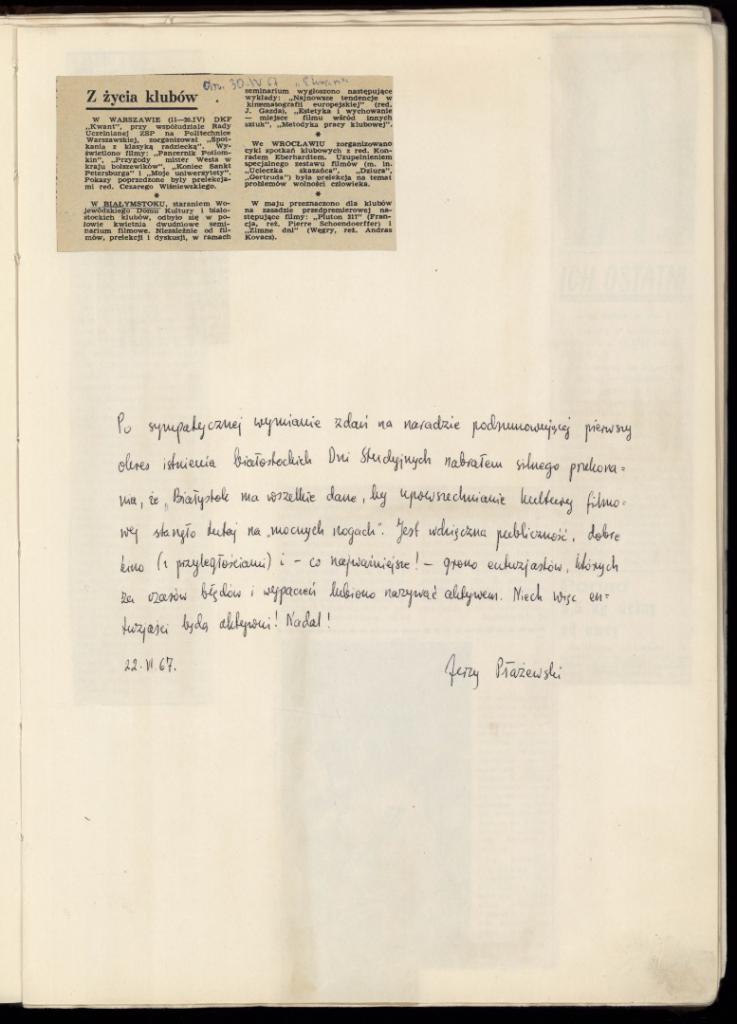 Dn. 30.IV 67 "Ekran"
Z życia klubów
W WARSZAWIE (11—20.IV) DKF
„Kwant", przy współudziale Rady
Uczelnianej ZSP na Politechnice
Warszawskiej, zorganizował „Spot-
kania z klasyką radziecką". Wy-
świetlono filmy: „Pancernik Potiom-
kin", „Przygody mister Westa w
kraju bolszewików", „Koniec Sankt
Petersburga" i „Moje uniwersytety".
Pokazy poprzedzone były prelekcja-
mi red. Cezarego Wiśniewskiego.
★
W BIAŁYMSTOKU, staraniem Wo-
jewódzkiego Domu Kultury i biało-
stockich klubów, odbyło się w po-
łowie kwietnia dwudniowe semi-
narium filmowe. Niezależnie od fil-
mów, prelekcji i dyskusji, w ramach
seminarium wygłoszono następujące
wykłady: „Najnowsze tendencje w
kinematografii europejskiej" (red.
J. Gazda), „Estetyka i wychowanie
— miejsce filmu wśród innych
sztuk", „Metodyka pracy klubowej".
★
We WROCŁAWIU zorganizowano
cykl spotkań klubowych z red. Kon-
radem Eberhardtem. Uzupełnieniem
specjalnego zestawu filmów (m. in.
„Ucieczka skazańca", „Dziura",
„Gertruda") była prelekcja na temat
problemów wolności człowieka.
★
W maju przeznaczono dla klubów
na zasadzie przedpremierowej na-
stępujące filmy: „Pluton 317" (Fran-
cja, reż. Pierre Schoendoerffer) i
„Zimne dni" (Węgry, reż. Andras
Kovacs).
ICH OSTATNI
Po sympatycznej wymianie zdań na naradzie podsumowującej pierwszy
okres istnienia białostockich Dni Studyjnych nabrałem silnego przekona-
nia, że Białystok ma wszelkie dane, by upowszechnianie kultury filmo-
wej stanęło tutaj na „mocnych nogach". Jest wdzięczna publiczność, dobre
kino (z przyległościami) i – co najważniejsze! – grono entuzjastów, których
za czasów błędów i wypaczeń lubiono nazywać aktywem. Niech więc en-
tuzjaści będą aktywni! Nadal!
22.VI 67.
Jerzy Płażewski